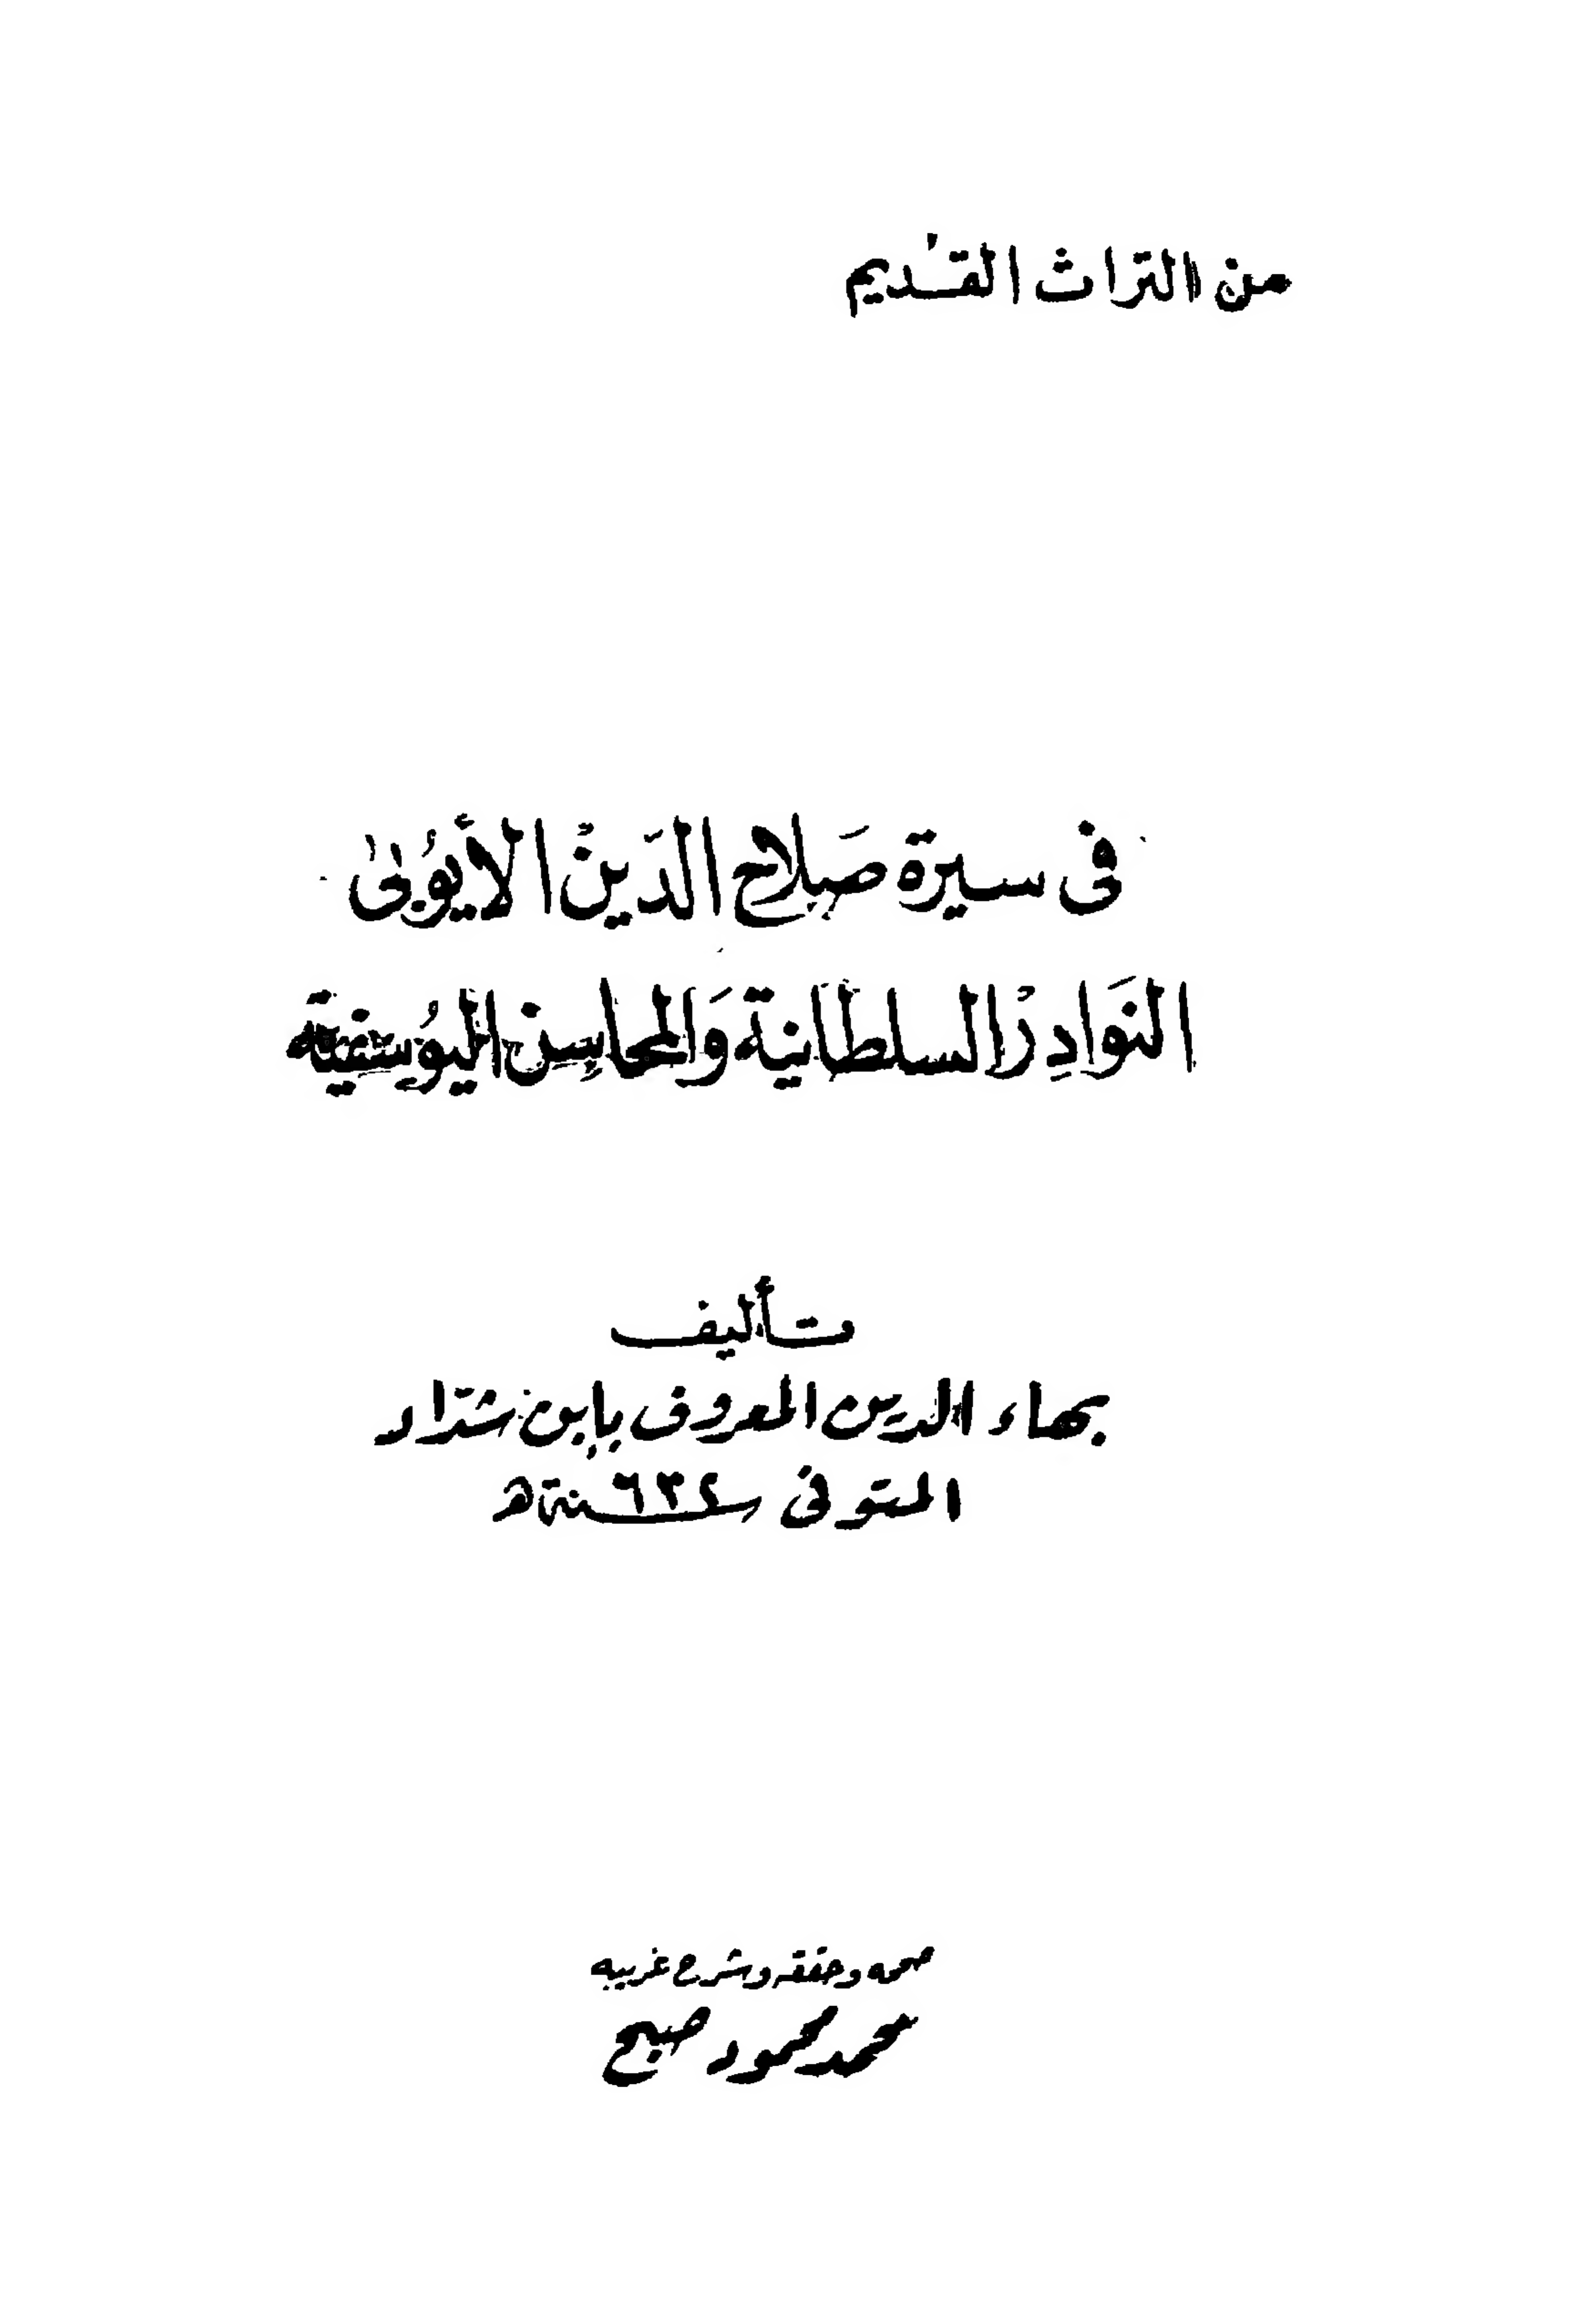 من التراث القديم
فى سيرة صَلاح الدّين الأيّوبى
النوَادِرُ السلطانية وَالمحاسِن اليُوسفية
تأليف
بهاء الدين المعروف بإبن شدّاد
المتوفى سنة ٦٣٢ هـ
صححه وحققه وشرح غريبه
محمد محمود صبيح